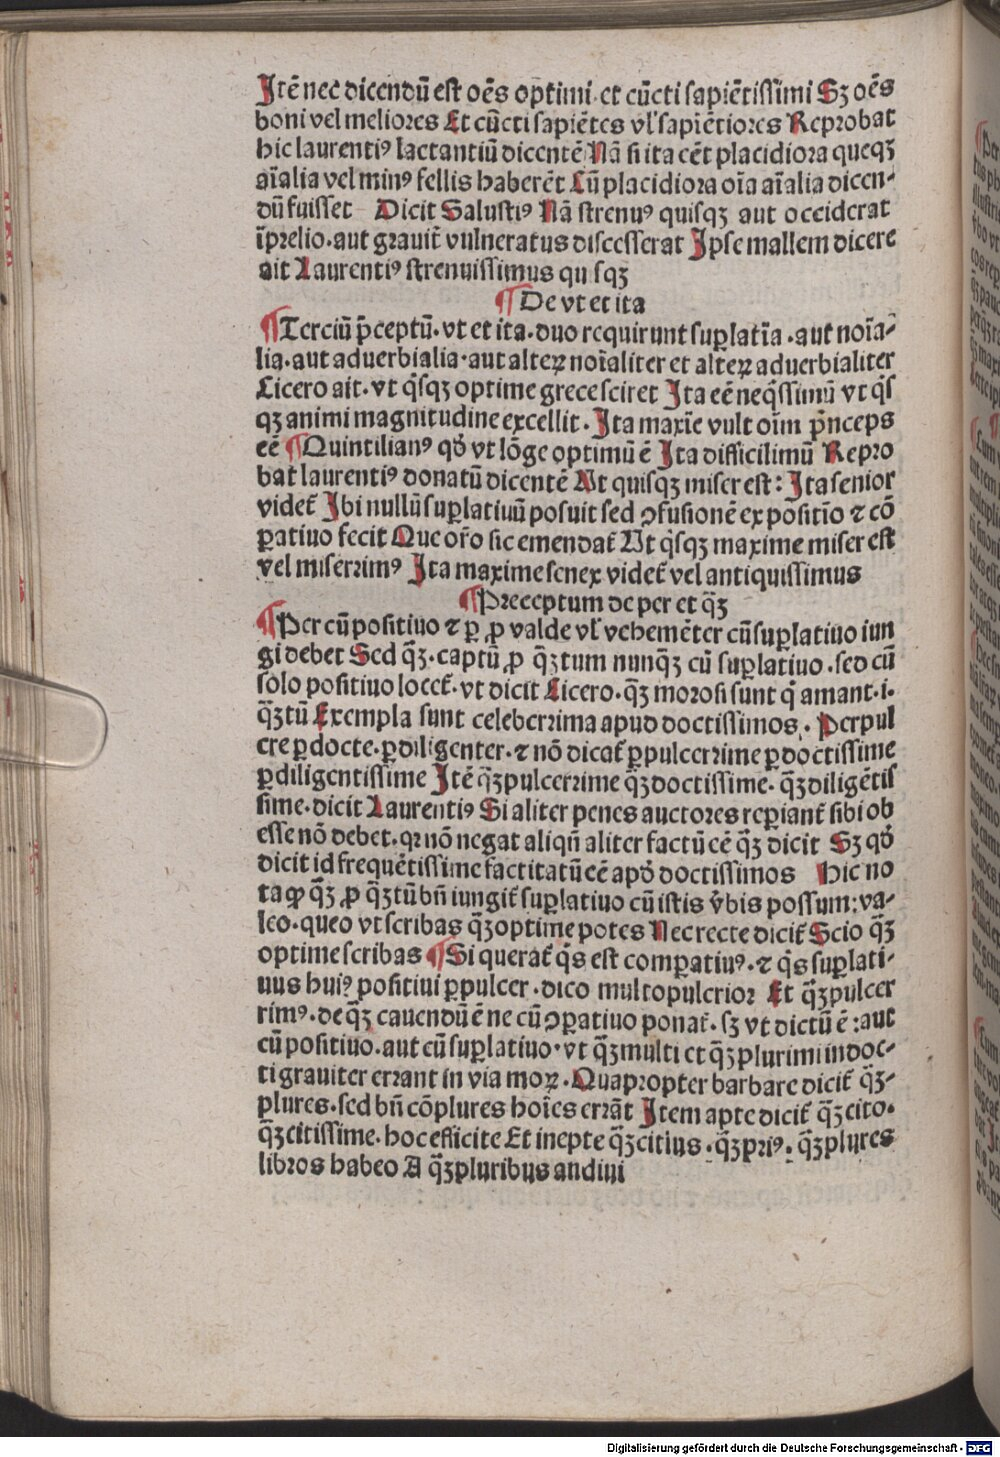 Itē nec dicendū est oēs optimi· et cūcti sapiētissimi Sꝫ oēs
boni vel meliores Et cūcti sapiētes vl' sapiētiores Reprobat
hic laurentiꝰ lactantiū dicentē Nā si ita eēt placidiora queqꝫ
aīalia vel minꝰ fellis haberēt Cū placidiora oīa aīalia dicen-
dū fuisset Dicit Salustiꝰ Nā strenuꝰ quisqꝫ aut occiderat
īprelio·aut grauit̄ vulneratus discesserat Ipse mallem dicere
ait Laurentiꝰ strenuissimus qu sqꝫ
¶ De vt et ita
¶ Terciū p̄ceptū·vt et ita·duo requirunt suꝑlatīa·aut noīa-
lia·aut aduerbialia·aut alteꝝ noīaliter et alteꝝ aduerbialiter
Cicero ait·vt q̄sqꝫ optime grece sciret Ita eē neq̄ssimū vt q̄s
qꝫ animi magnitudine excellit·Ita maxīe vult oīm pr̄nceps
eē ¶ Quintilianꝰ qd̄ vt lōge optimū ē Ita difficilimū Repro
bat laurentiꝰ donatū dicentē Ut quisqꝫ miser est: Ita senior
videt̄ Ibi nullū suꝑlatiuū posuit sed ꝯfusionē ex positīo ⁊ cō
ꝑatiuo fecit Que or̄o sic emendat̄ Ut q̄sqꝫ maxime miser est
vel miserrimꝰ Ita maxime senex videt̄ vel antiquissimus
¶ Preceptum de per et q̄ꝫ
¶ Per cū positiuo ⁊ ꝑ ꝓ valde vl' vehemēter cū suꝑlatiuo iun
gi debet Sed q̄ꝫ·captū ꝓ q̄ꝫtum nunq̄ꝫ cū suꝑlatiuo·sed cū
solo positiuo locet̄·vt dicit Cicero·q̄ꝫ morosi sunt q̄ amant·i·
q̄ꝫtū Exempla sunt celeberrima apud doctissimos·Perpul
cre ꝑdocte·ꝑdiligenter·⁊ nō dicat̄ ꝑpulcerrime ꝑdoctissime
ꝑdiligentissime Itē q̄ꝫpulcerrime q̄ꝫdoctissime·q̄ꝫdiligētis
sime·dicit Laurentiꝰ Si aliter penes auctores reꝑiant̄ sibi ob
esse nō debet·qꝛ nō negat aliqn̄ aliter factū eē q̄ꝫ dicit Sꝫ qd̄
dicit id frequētissime factitatū eē apd̄ doctissimos Hic no
ta ꝙ q̄ꝫ ꝓ q̄ꝫtū bn̄ iungit̄ suꝑlatiuo cū istis v̄bis possum: va-
leo·queo vt scribas q̄ꝫ optime potes Nec recte dicit̄ Scio q̄ꝫ
optime scribas ¶ Si querat̄ q̄s est comꝑatiuꝰ·⁊ q̄s suꝑlati-
uus huiꝰ positiui ꝑpulcer·dico multopulcrior Et q̄ꝫpulcer
rimꝰ·de q̄ꝫ cauendū ē ne cū ꝯꝑatiuo ponat̄·sꝫ vt dictū ē: aut
cū positiuo·aut cū suꝑlatiuo·vt q̄ꝫ multi et q̄ꝫ plurimi indoc-
ti grauiter errant in via moꝝ·Quapropter barbare dicit̄ q̄ꝫ-
plures·sed bn̄ cōplures hoīes errāt Item apte dicit̄ q̄ꝫ cito·
q̄ꝫ citissime·hoc efficite Et inepte q̄ꝫ citius·q̄ꝫ priꝰ·q̄ꝫ plures
libros habeo A q̄ꝫ pluribus audiui
Digitalisierung gefördert durch die Deutsche Forschungsgemeinschaft - DFG